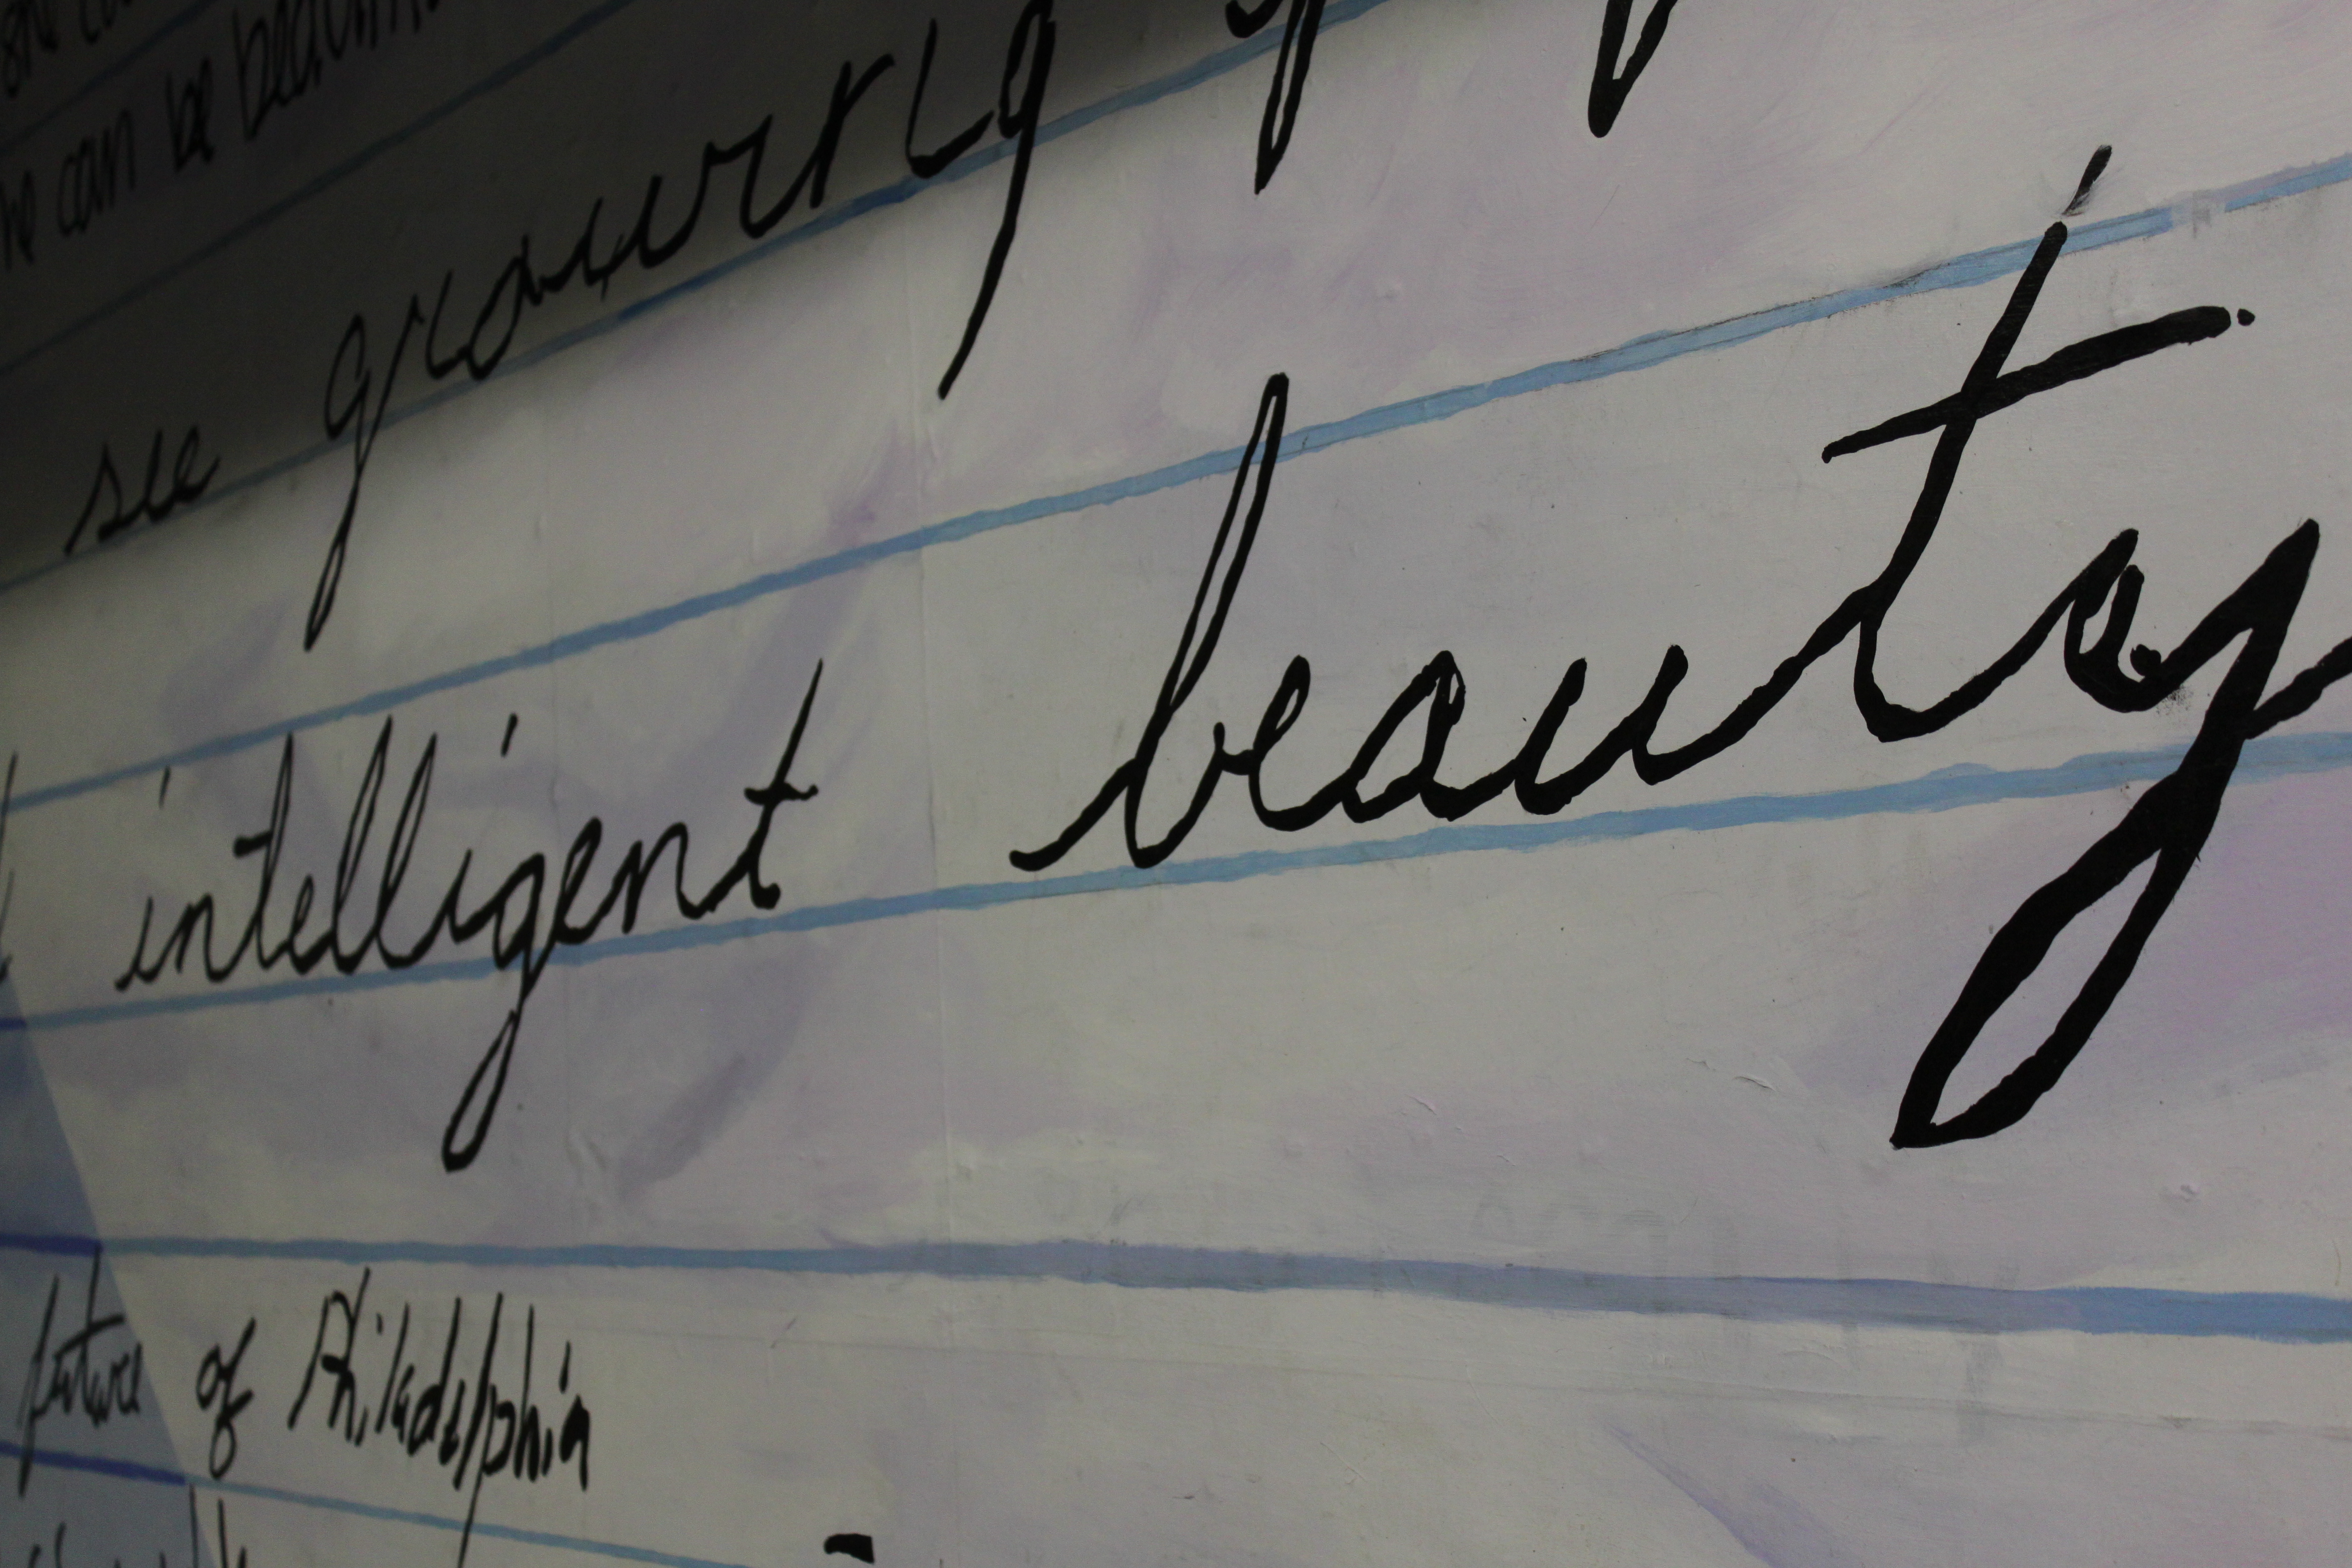 she
he can be beautiful
see growing
intelligent beauty
future of Philadelphia